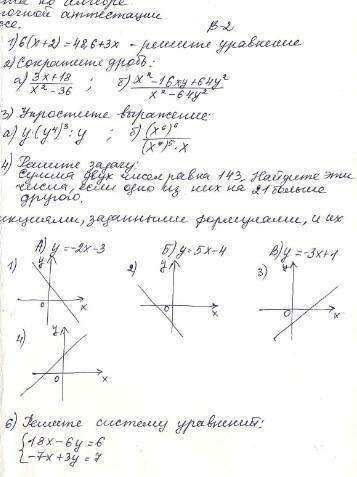 по алгебре
точной аттестации
В-2
1) 6(x+2)=42,6+3x - решите уравнение
2) Сократите дробь:
а) (3x+18)/(x²-36) ; б) (x²-16xy+64y²)/(x²-64y²)
3) Упростите выражение:
а) y·(y⁴)³:y ; б) (x⁶)⁶/((x⁴)⁵·x)
4) Решите задачу:
Сумма двух чисел равна 143. Найдите эти
числа, если одно из них на 21 больше
другого.
кциями, заданными формулами, и их
А) y=-2x-3 Б) y=5x-4 В) y=-3x+1
1) y 0 x 2) y 0 x 3) y 0 x
4) y 0 x
6) Решите систему уравнений:
{18x-6y=6
-7x+3y=7